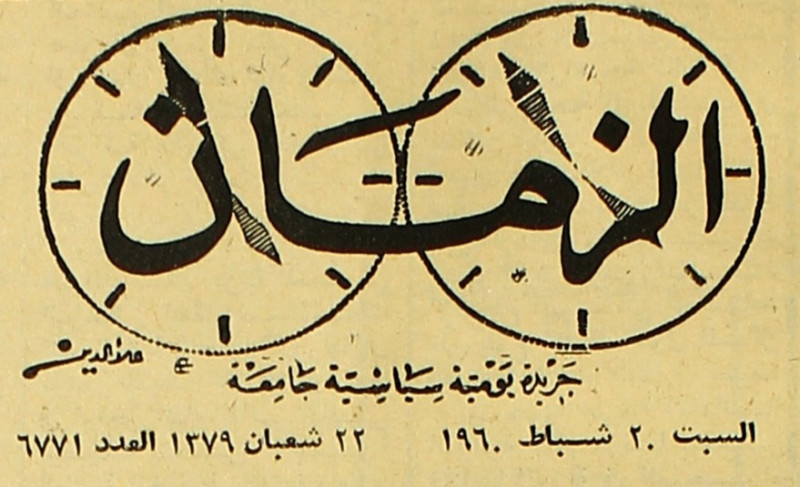 الزمان
علاء الدين
جريدة يومية سياسية جامعة
السبت ٢٠ شباط ١٩٦٠ ٢٢ شعبان ١٣٧٩ العدد ٦٧٧١